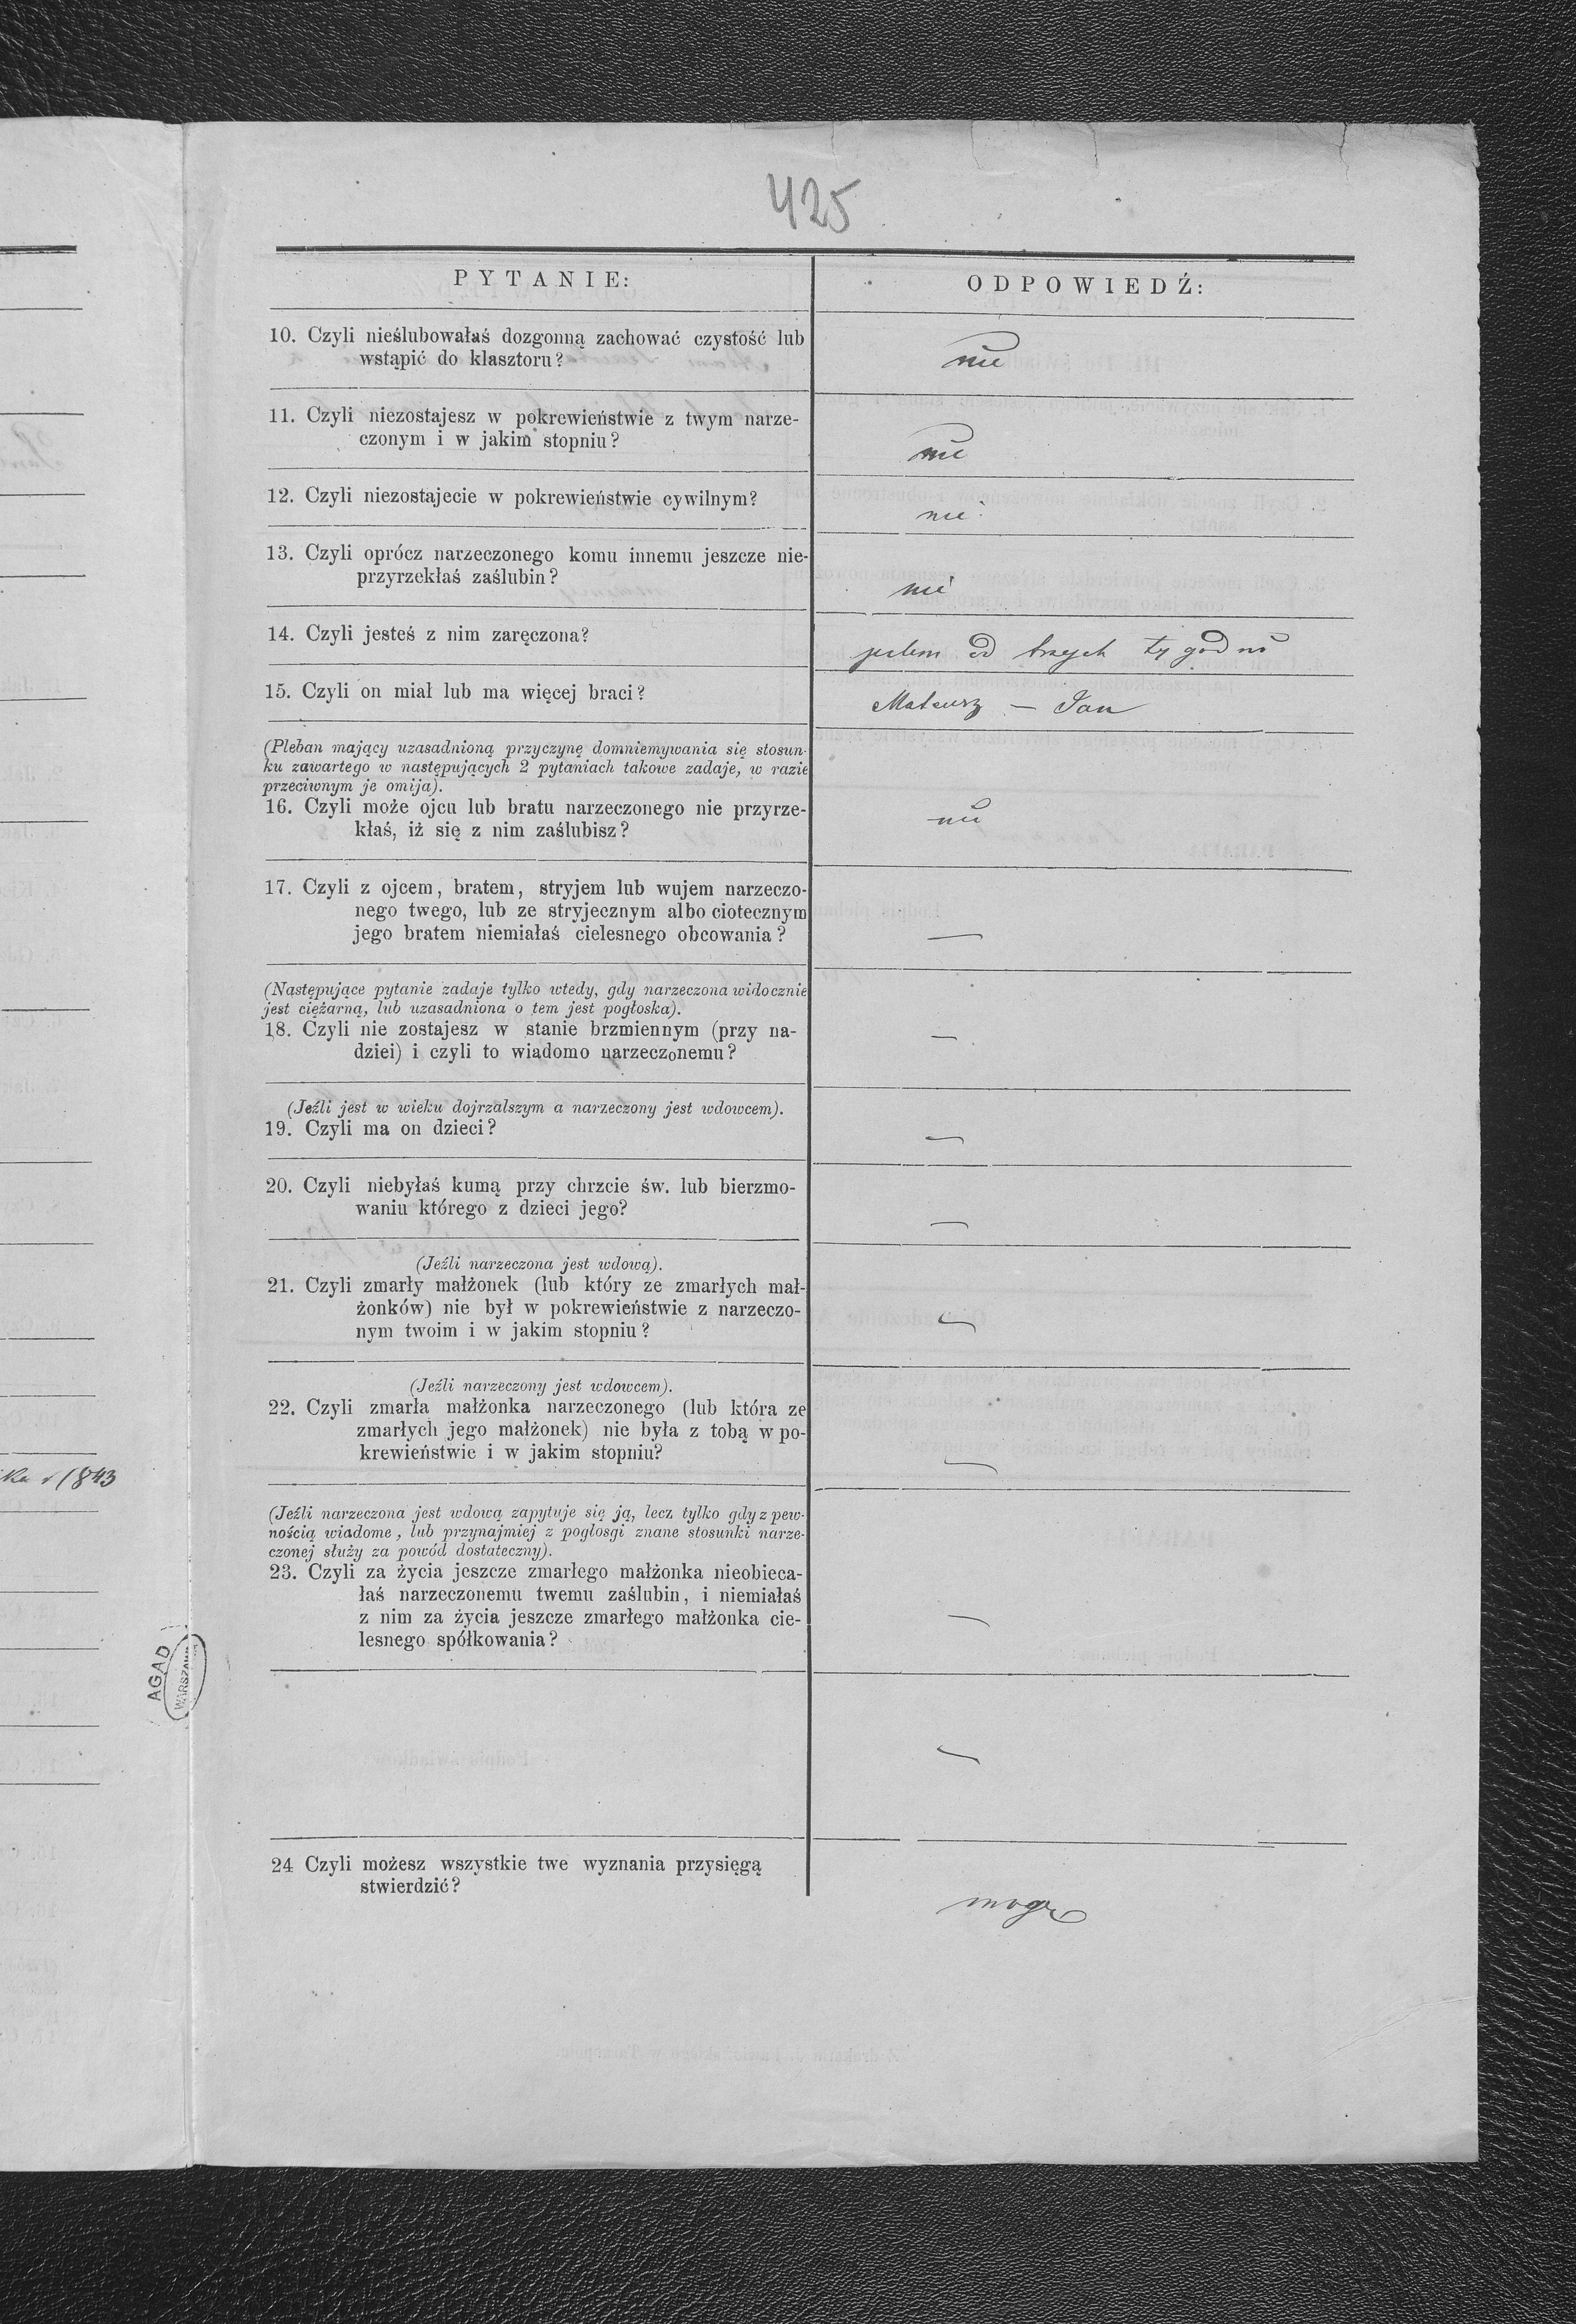 425
PYTANIE:
ODPOWIEDŹ:
10. Czyli nieślubowałaś dozgonną zachować czystość lub
wstąpić do klasztoru?
nie
11. Czyli niezostajesz w pokrewieństwie z twym narze-
czonym i w jakim stopniu?
nie
12. Czyli niezostajecie w pokrewieństwie cywilnym?
nie
13. Czyli oprócz narzeczonego komu innemu jeszcze nie-
przyrzekłaś zaślubin?
nie
14. Czyli jesteś z nim zaręczona?
jestem od trzech tygodni
15. Czyli on miał lub ma więcej braci?
Mateusz — Jan
(Pleban mający uzasadnioną przyczynę domniemywania się stosun-
ku zawartego w następujących 2 pytaniach takowe zadaje, w razie
przeciwnym je omija).
16. Czyli może ojcu lub bratu narzeczonego nie przyrze-
kłaś, iż się z nim zaślubisz?
nie
17. Czyli z ojcem, bratem, stryjem lub wujem narzeczo-
nego twego, lub ze stryjecznym albo ciotecznym
jego bratem niemiałaś cielesnego obcowania?
—
(Następujące pytanie zadaje tylko wtedy, gdy narzeczona widocznie
jest ciężarną, lub uzasadniona o tem jest pogłoska).
18. Czyli nie zostajesz w stanie brzmiennym (przy na-
dziei) i czyli to wiadomo narzeczonemu?
—
(Jeźli jest w wieku dojrzalszym a narzeczony jest wdowcem).
19. Czyli ma on dzieci?
—
20. Czyli niebyłaś kumą przy chrzcie św. lub bierzmo-
waniu którego z dzieci jego?
—
(Jeźli narzeczona jest wdową).
21. Czyli zmarły małżonek (lub który ze zmarłych mał-
żonków) nie był w pokrewieństwie z narzeczo-
nym twoim i w jakim stopniu?
—
(Jeźli narzeczony jest wdowcem).
22. Czyli zmarła małżonka narzeczonego (lub która ze
zmarłych jego małżonek) nie była z tobą w po-
krewieństwie i w jakim stopniu?
—
(Jeźli narzeczona jest wdową zapytuje się ją, lecz tylko gdy z pew-
nością wiadome, lub przynajmiej z poglosgi znane stosunki narze-
czonej służy za powód dostateczny).
23. Czyli za życia jeszcze zmarłego małżonka nieobieca-
łaś narzeczonemu twemu zaślubin, i niemiałaś
z nim za życia jeszcze zmarłego małżonka cie-
lesnego spółkowania?
—
—
24 Czyli możesz wszystkie twe wyznania przysięgą
stwierdzić?
mogę
1843
AGAD
WARSZAWA